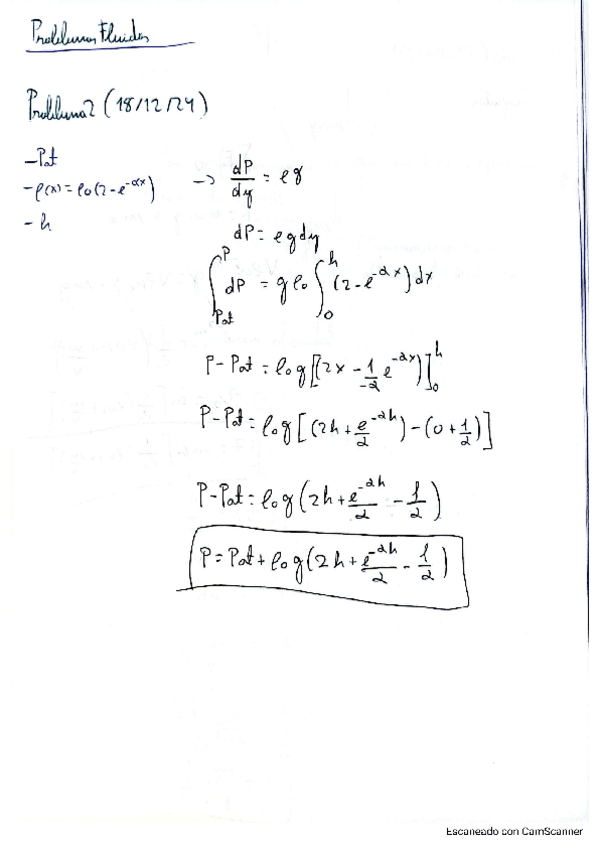 Problemas Fluidos
Problema 2 (18/12/24)
- Pat
- ρ(x) = ρ0(2 - e^{-αx}) -> dP/dy = ρg
- h
dP = ρgdy
∫_{Pat}^{P} dP = gρ0 ∫_{0}^{h} (2 - e^{-αx}) dx
P - Pat = ρ0g[(2x - 1/-α e^{-αx})]_{0}^{h}
P - Pat = ρ0g[(2h + e^{-αh}/α) - (0 + 1/α)]
P - Pat = ρ0g(2h + e^{-αh}/α - 1/α)
P = Pat + ρ0g(2h + e^{-αh}/α - 1/α)
Escaneado con CamScanner